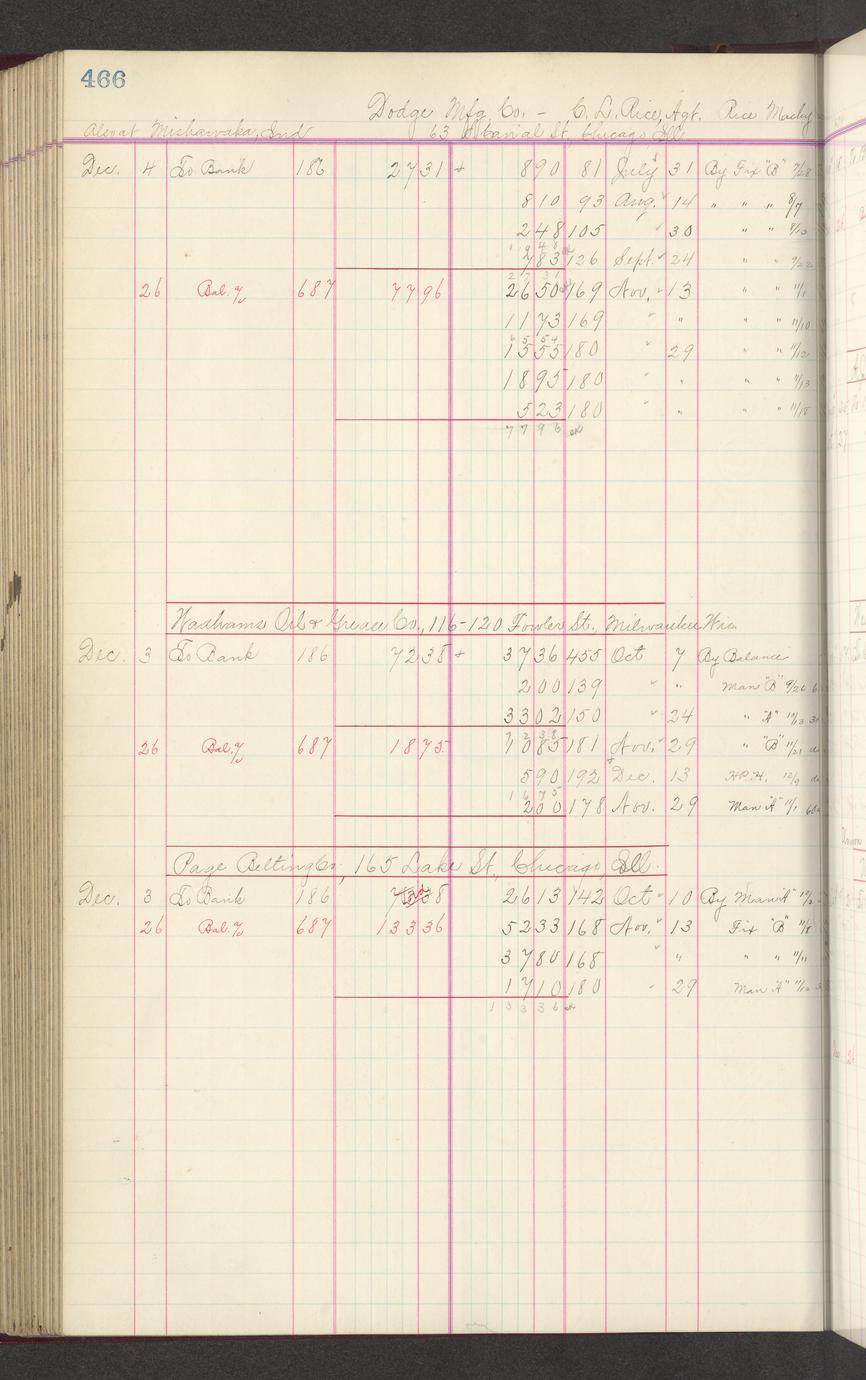 466
Dodge Mfg. Co. - C. L. Rice, Agt. Rice Machy
Also at Mishawaka, Ind 63 Canal St, Chicago, Ill
Dec. 4 To Bank 186 2731 + 890 81 July 31 By Fix "B" 7/28
810 93 Aug. 14 " " " 8/7
248 105 " 30 " " 8/13
1948
783 126 Sept. 24 " " 9/22
2731
26 Bal. 687 7796 2650 169 Nov. 13 " " 11/1
1173 169 " " " " 11/10
6554
1555 180 " 29 " " 11/12
1895 180 " " " " 11/13
523 180 " " " " 11/18
7796 ok
Wadhams Oil & Grease Co., 116-120 Fowler St., Milwaukee Wis
Dec. 3 To Bank 186 7238 + 3736 455 Oct 7 By Balance
200 139 " " Man "B" 9/26
3302 150 " 24 " "A" 10/13
7238
26 Bal. 687 1875 1085 181 Nov. 29 " "B" 11/21
590 192 Dec. 13 H.P.H. 12/9
1675
200 178 Nov. 29 Man "A" 11/1
Page Belting Co., 165 Lake St., Chicago, Ill.
Dec. 3 To Bank 186 2613 142 Oct 10 By Man "A"
26 Bal. 687 13336 5233 168 Nov. 13 Fix "B" 11/8
3780 168 " " " " 11/11
1710 180 " 29 Man "A" 11/12
13336 ok